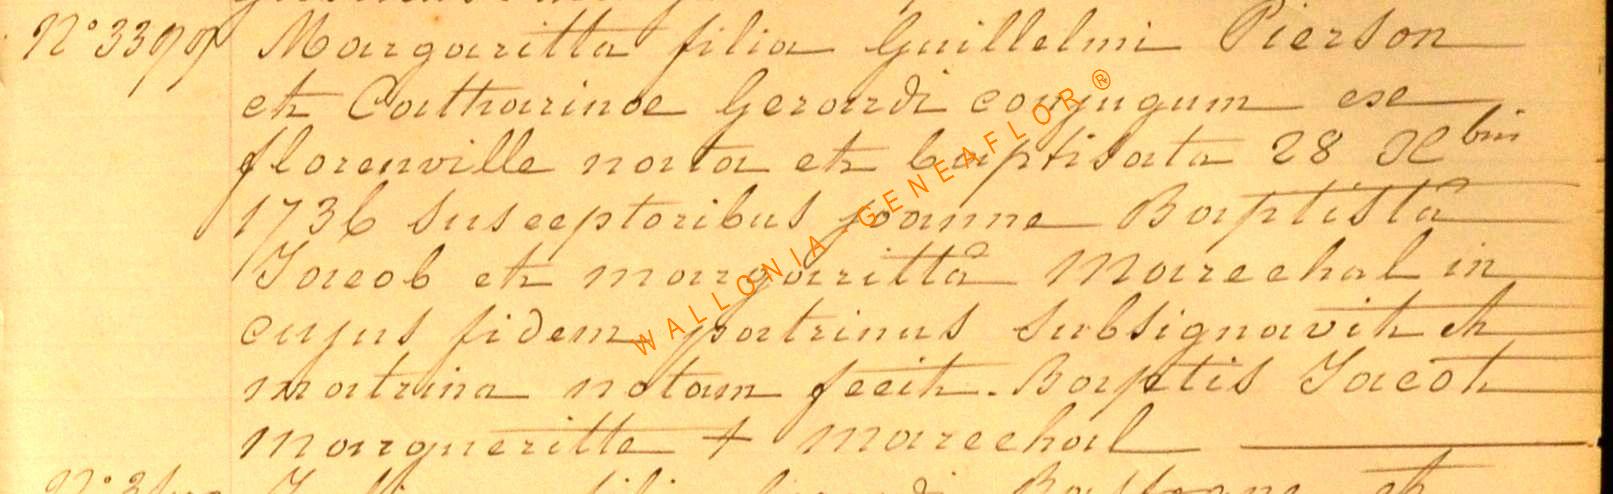 N° 3399 Margaritta filia Guillelmi Pierson
et Catharinae Gerardi conjugum exe
florenville nata et baptisata 28 X bris
1736 susceptoribus joanne Baptistâ
Jacob et margarittâ Marechal in
cujus fidem patrinus subsignavit et
matrina notam fecit. Baptis Jacob
margueritte + marechal
WALLONIA-GENEAFLOR®